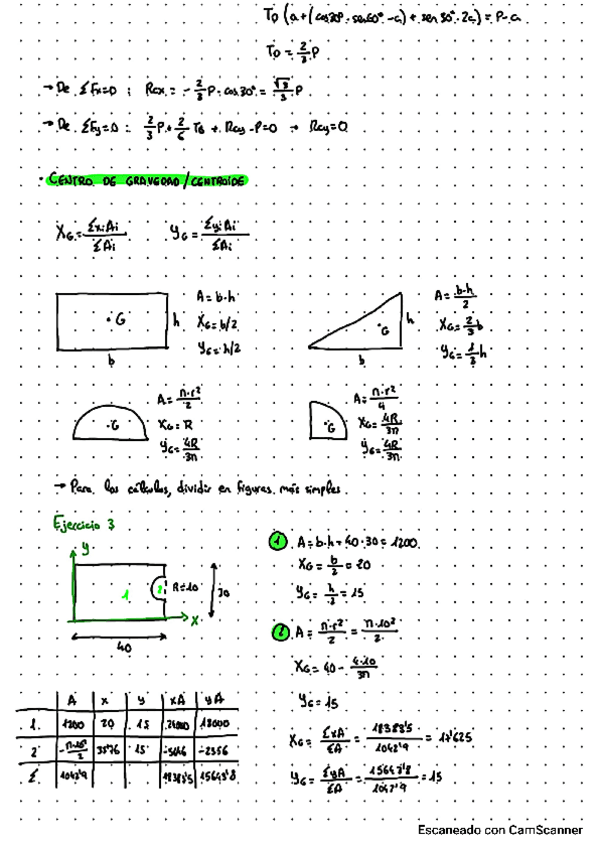 T_D (a+(cos30º·sen60º·a)+sen30º·2a) = P·a
T_D = 2/3 P
→ De ΣFx=0 : Rcx = -2/3 P·cos30º = √3/3 P
→ De ΣFy=0 : 2/3 P + 2/6 T_B + Rcy - P = 0 → Rcy = 0
· CENTRO DE GRAVEDAD/CENTROIDE
X_G = ΣxiAi/ΣAi   y_G = ΣyiAi/ΣAi
·G h b
A = b·h
X_G = b/2
y_G = h/2
·G h b
A = b·h/2
X_G = 2/3 b
y_G = 1/3 h
·G
A = π·r²/2
X_G = R
y_G = 4R/3π
·G
A = π·r²/4
X_G = 4R/3π
y_G = 4R/3π
→ Para los cálculos, dividir en figuras más simples.
Ejercicio 3
y 1 2 R=10 30 x 40
1 A = b·h = 40·30 = 1200
X_G = b/2 = 20
y_G = h/2 = 15
2 A = π·r²/2 = π·10²/2
X_G = 40 - 4·10/3π
y_G = 15
A x y xA yA
1. 1200 20 15 24000 18000
2 -π·10²/2 35'76 15 -2356
Σ 1042'9 18383'5 15643'8
X_G = ΣxA/ΣA = 18383'5/1042'9 = 17'625
y_G = ΣyA/ΣA = 15643'8/1042'9 = 15
Escaneado con CamScanner